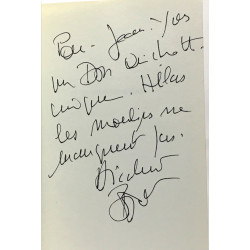 Pour Jean-Yves
un Don Quichotte
unique. Hélas
les moulins ne
manquent pas.